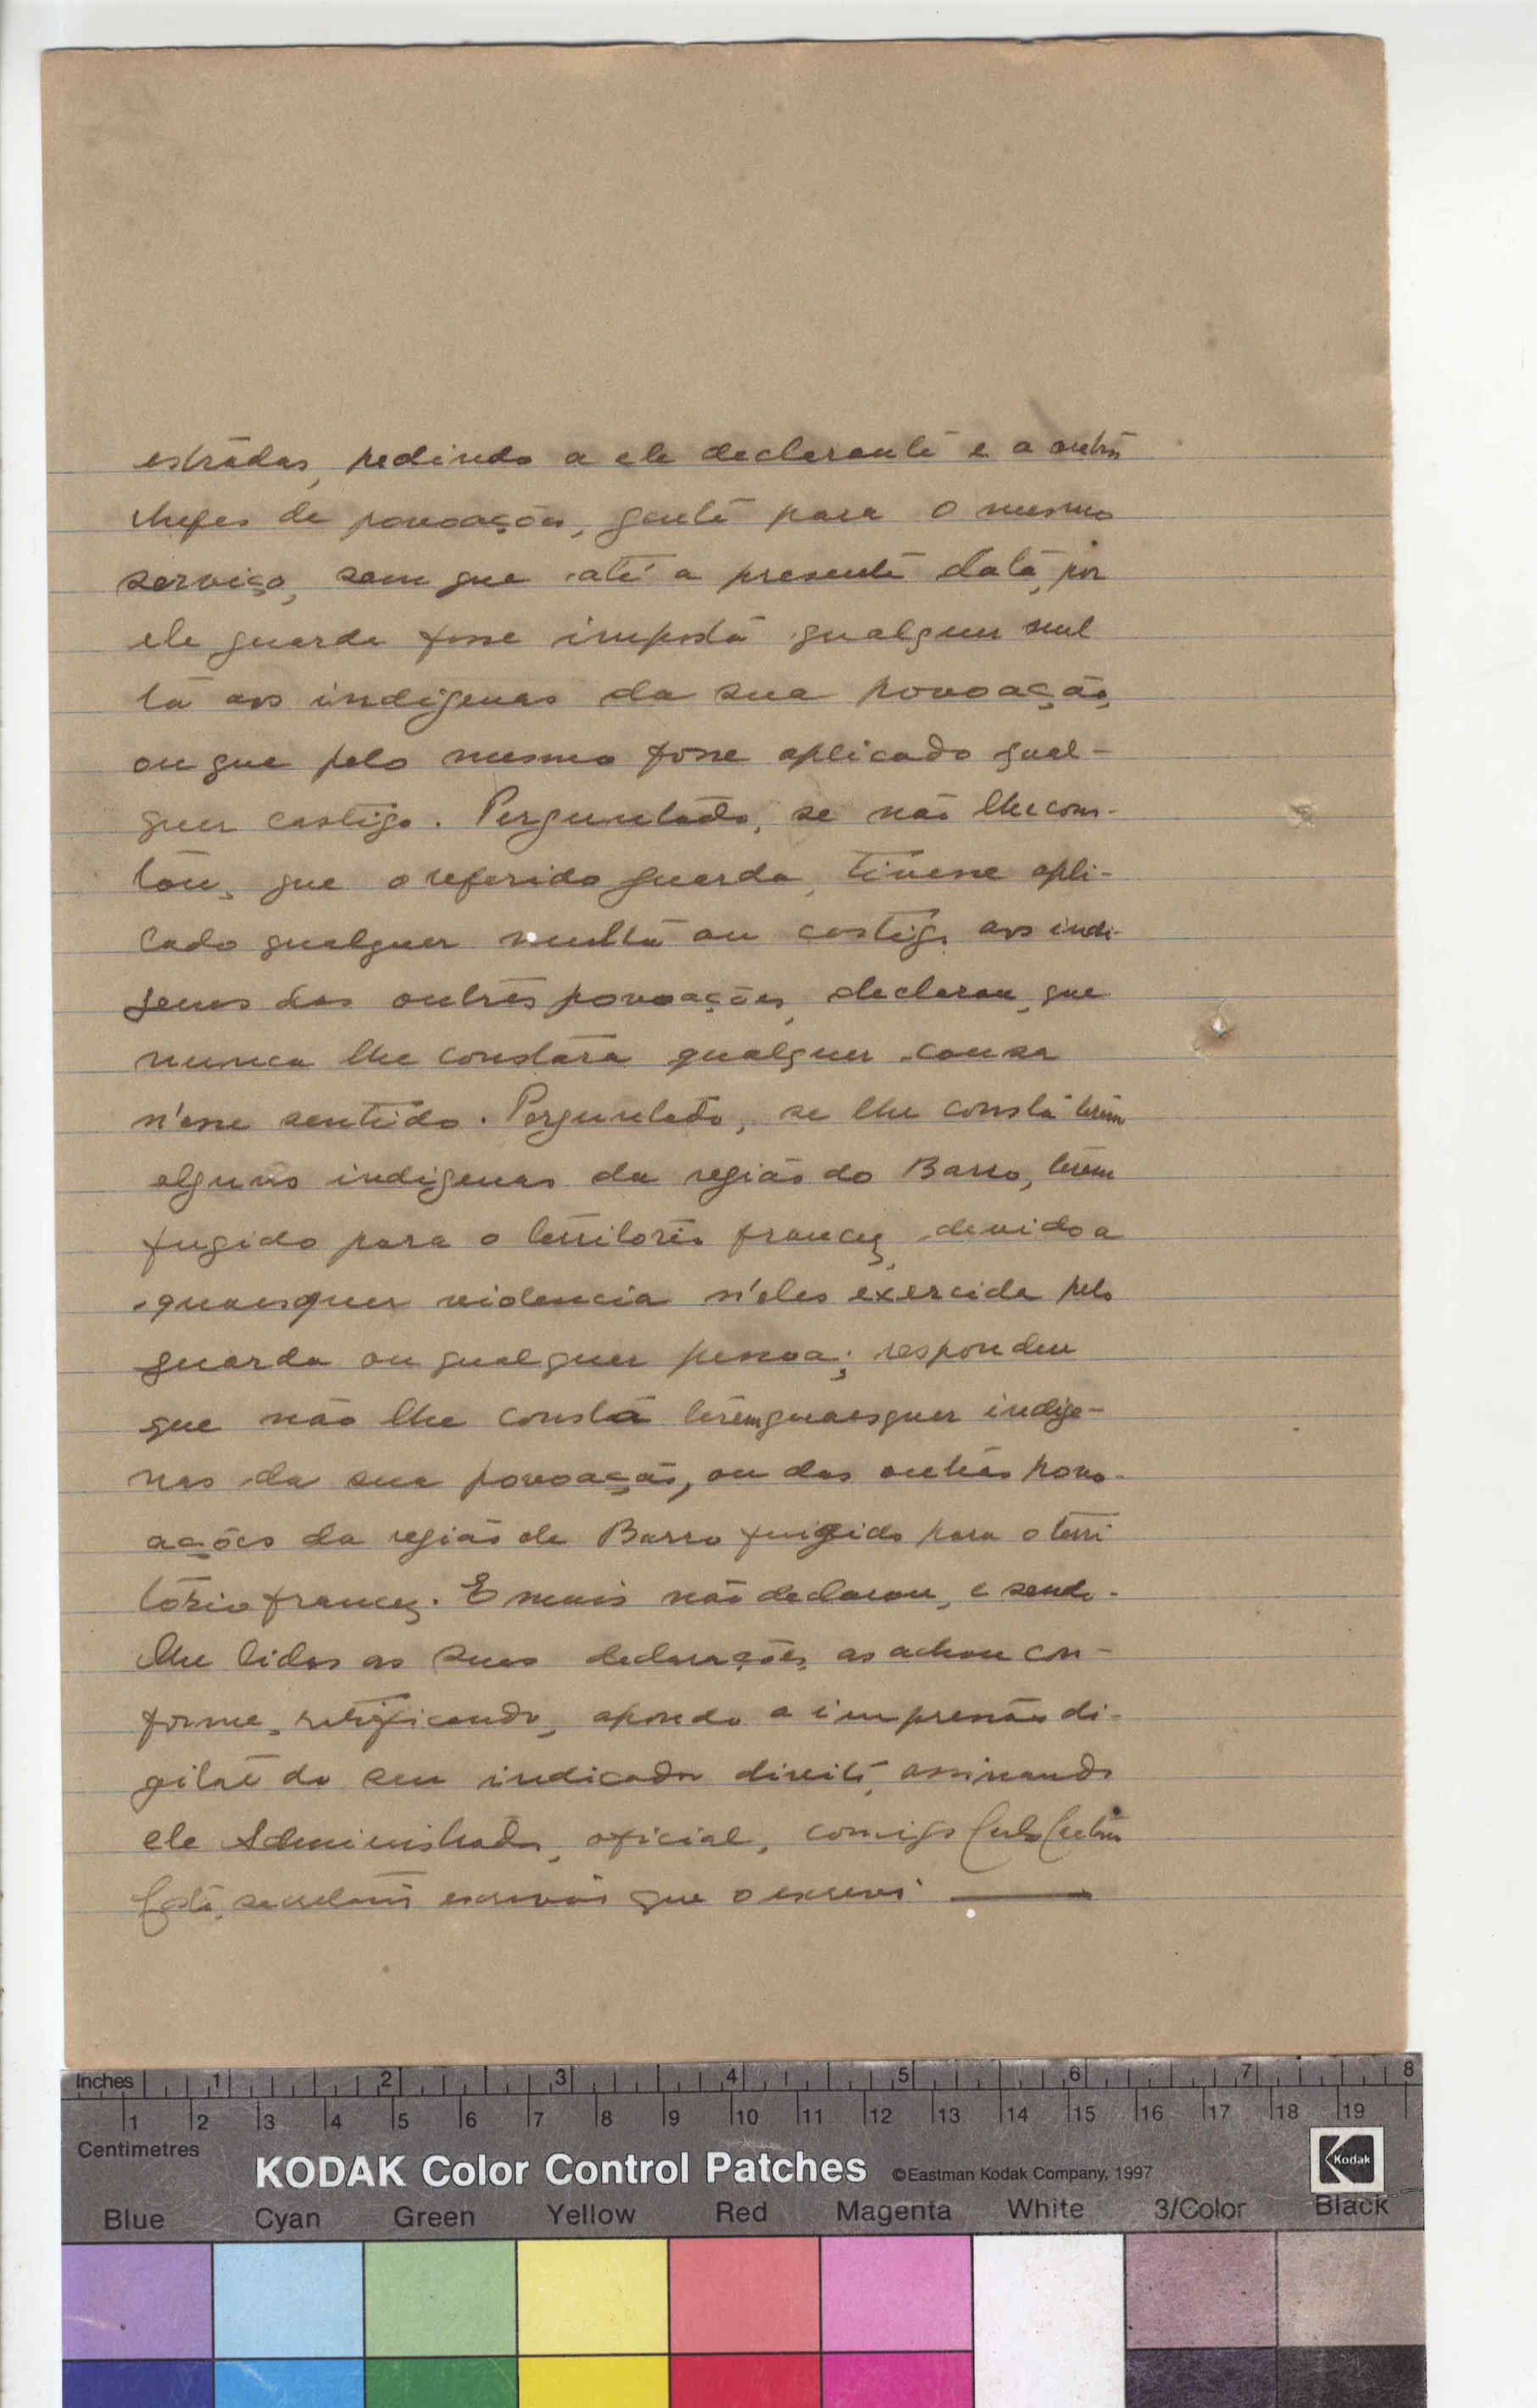 estradas, pedindo a ele declarante e a outros
chefes de povoações, gente para o mesmo
serviço, sem que até a presente data, por
ele guarda fosse imposta qualquer mul
ta aos indigenas da sua povoação,
ou que pelo mesmo fosse aplicado qual-
quer castigo. Perguntado, se não lhe cons-
tou, que o referido guarda, tivesse apli-
cado qualquer multa ou castigo aos indi-
genas das outras povoações, declarou, que
nunca lhe constára qualquer cousa
n'esse sentido. Perguntado, se lhe consta terem
alguns indigenas da região do Barro, terem
fugido para o territorio francez, devido a
quaesquer violencia n'eles exercida pelo
guarda ou qualquer pessoa; respondeu
que não lhe consta terem quaesquer indige-
nas da sua povoação, ou das outras povo-
ações da região de Barro fugido para o terri
tório francez. E mais não declarou, e sendo-
lhe lidas as suas declarações, as achou con-
forme, ratificando, apondo a impressão di-
gital do seu indicador direito, assinando
ele Administrador, oficial, comigo
Costa, secretario escrivão que o escrevi
Inches 1 2 3 4 5 6 7 8
1 2 3 4 5 6 7 8 9 10 11 12 13 14 15 16 17 18 19
Centimetres
KODAK Color Control Patches ©Eastman Kodak Company, 1997 Kodak
Blue Cyan Green Yellow Red Magenta White 3/Color Black